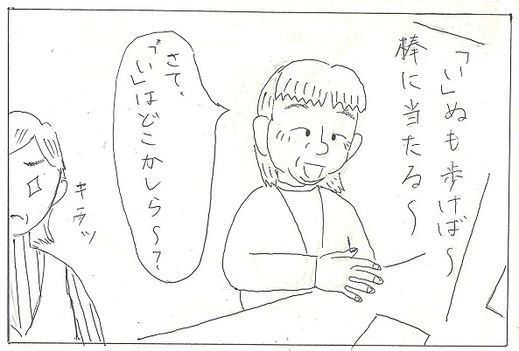 「い」ぬも歩けば〜
棒に当たる〜
さて、
「い」はどこかしら〜?
キラッ